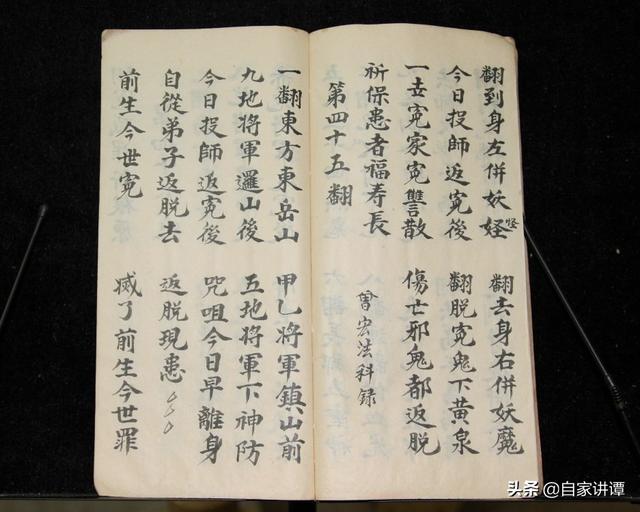 翻到身左併妖怪 翻去身右併妖魔
今日投師返寃後 翻脫寃鬼下黄泉
一去寃家寃讐散 傷亡邪鬼都返脫
祈保患者福寿長
第四十五翻 曾宏法科録
一翻東方東岳山 甲乙將軍鎮山前
九地將軍邏山後 五地將軍下神防
今日投師返寃後 咒咀今日早離身
自從弟子返脫去 返脫現患
前生今世寃 滅了前生今世罪
头条 @自家讲谭